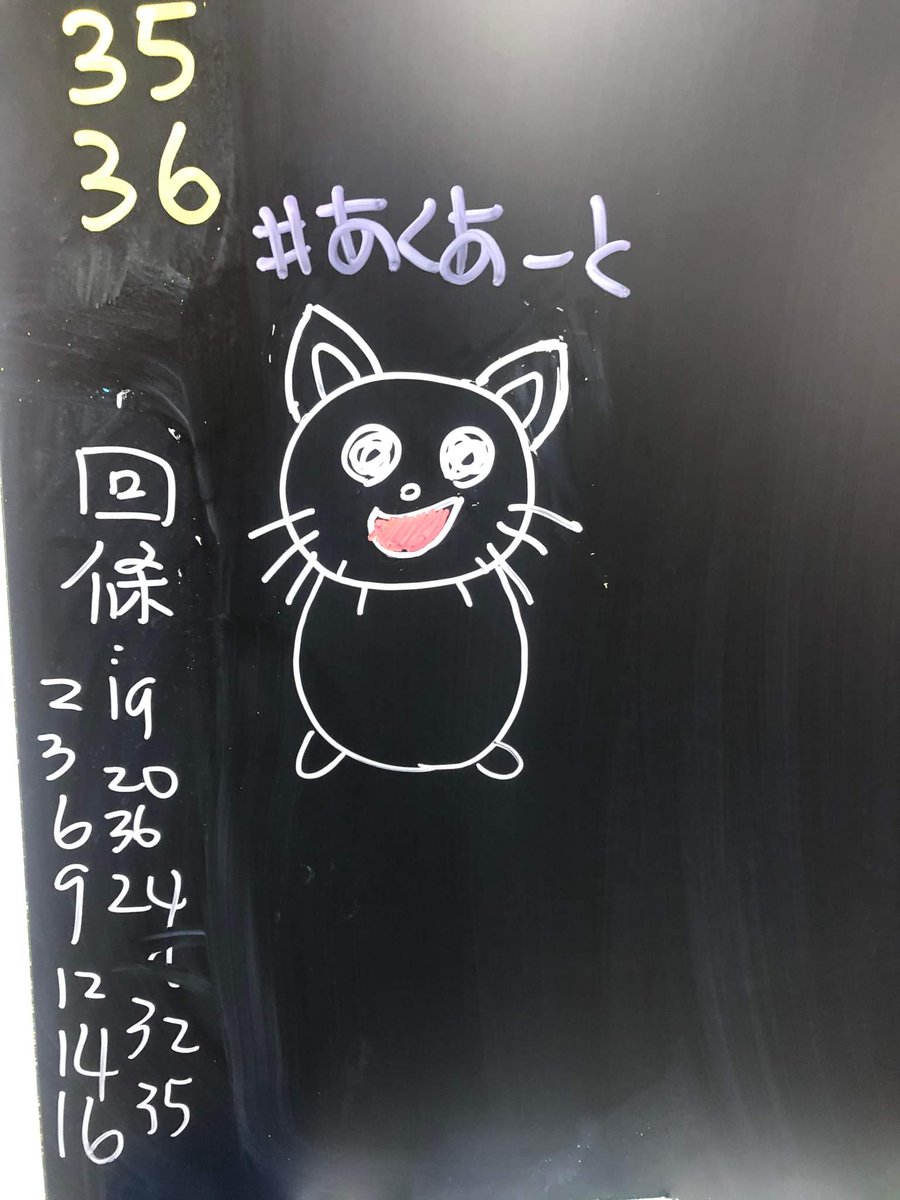 35
36
#あくあーと
回
條
:
2 19
3 20
6 36
9 24
12
14 32
16 35